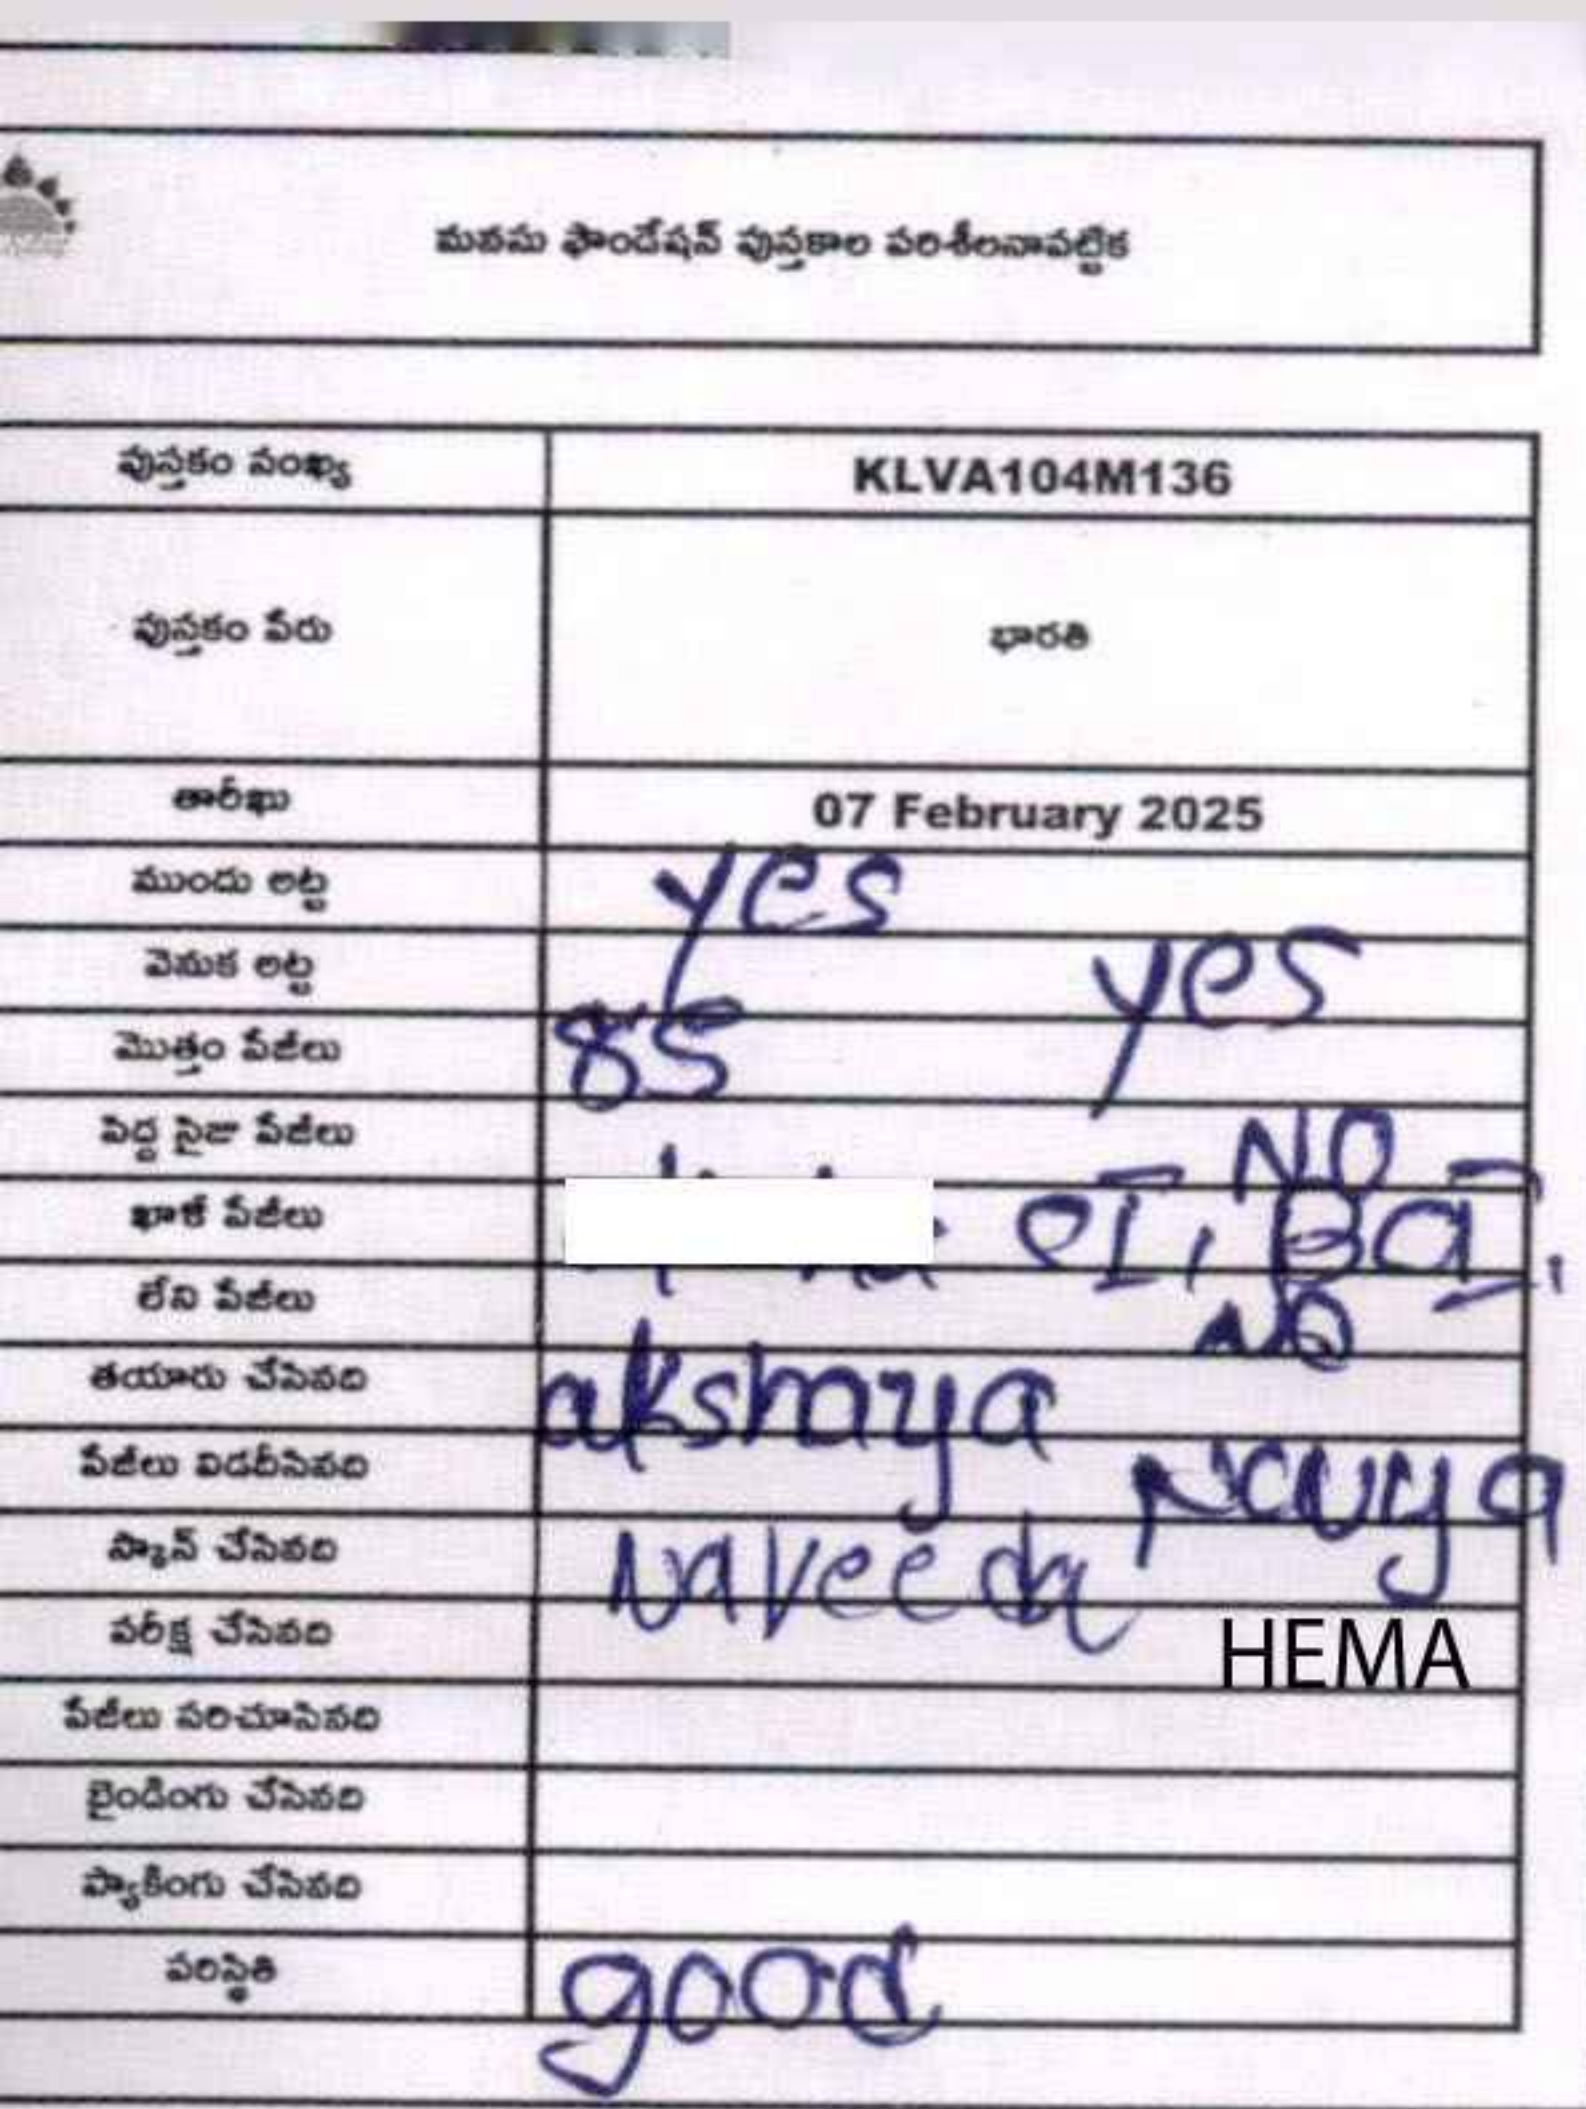 మనసు ఫౌండేషన్ పుస్తకాల పరిశీలనాపట్టిక
పుస్తకం సంఖ్య KLVA104M136
పుస్తకం పేరు భారతి
తారీఖు 07 February 2025
ముందు అట్ట yes
వెనుక అట్ట yes
మొత్తం పేజీలు 85
పెద్ద సైజు పేజీలు NO
ఖాళీ పేజీలు
లేని పేజీలు NO
తయారు చేసినది akshaya
పేజీలు విడదీసినది Navya
స్కాన్ చేసినది Naveeda
పరీక్ష చేసినది HEMA
పేజీలు సరిచూసినది
బైండింగు చేసినది
ప్యాకింగు చేసినది
పరిస్థితి good